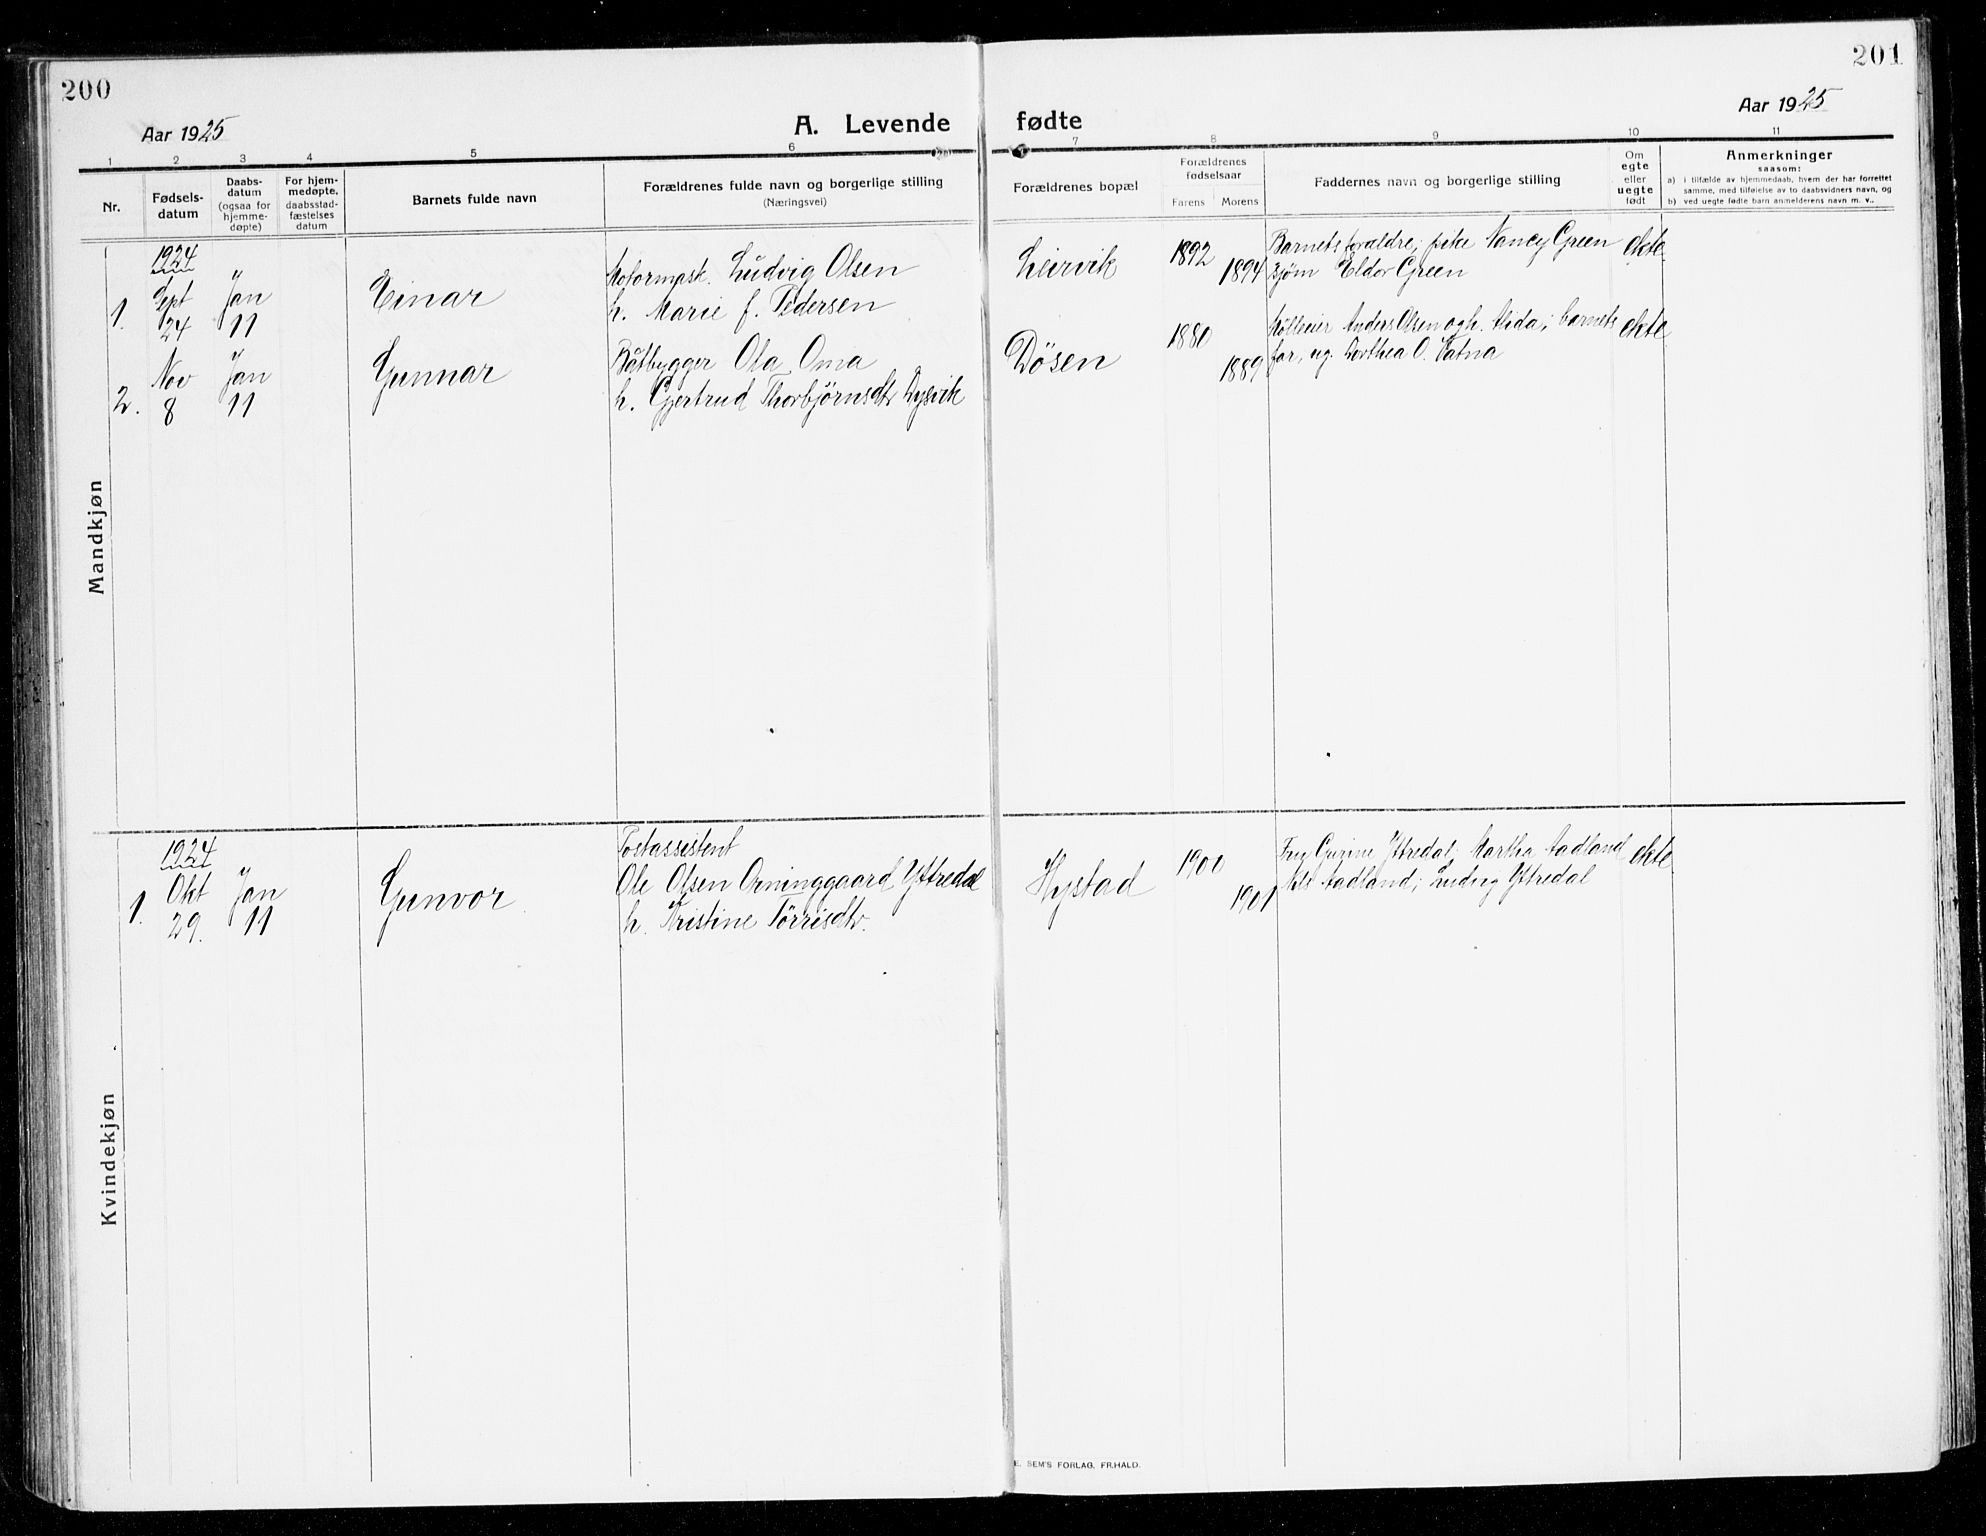 200
201
Aar 1925
A. Levende fødte
Aar 1925
1 2 3 4 5 6 7 8 9 10 11
Nr.
Fødsels-
datum
Daabs-
datum
(ogsaa for
hjemme-
døpte)
For hjem-
medøpte,
daabsstad-
fæstelses
datum
Barnets fulde navn
Forældrenes fulde navn og borgerlige stilling
(Næringsvei)
Forældrenes bopæl
Forældrenes
fødselsaar
Farens Morens
Faddernes navn og borgerlige stilling
Om
egte
eller
uegte
født
Anmerkninger
saasom:
a) i tilfælde av hjemmedaab, hvem der har forrettet
samme, med tilføielse av to daabsvidners navn, og
b) ved uegte fødte barn anmelderens navn m. v..
Mandkjøn
1924
1. Sept 24
" Jan 11
Einar
Motormask. Ludvig Olsen
h. Marie f. Pedersen
Leirvik
1892
1894
Barnets foraldre; pike Nancy Green
sjøm Eldor Green
ekte
2. Nov 8
" Jan 11
Gunnar
Båtbygger Ola Oma
h. Gjertrud Thorbjörnsdtr Dysvik
Dösen
1880
1889
Anders Olsen og h. Alida; barnets
far, ug. Dorthea O. Vatna
ekte
Kvindekjøn
1924
1. Okt 29.
" Jan 11
Gunvor
Postassistent
Ole Olsen Orninggaard Yttredal
h. Kristine Törrisdtr.
Hystad
1900
1901
Fru Gurine Yttredal; Martha Aadland
Nils Aadland; Ludvig Yttredal
ekte
E. SEM'S FORLAG, FR.HALD.